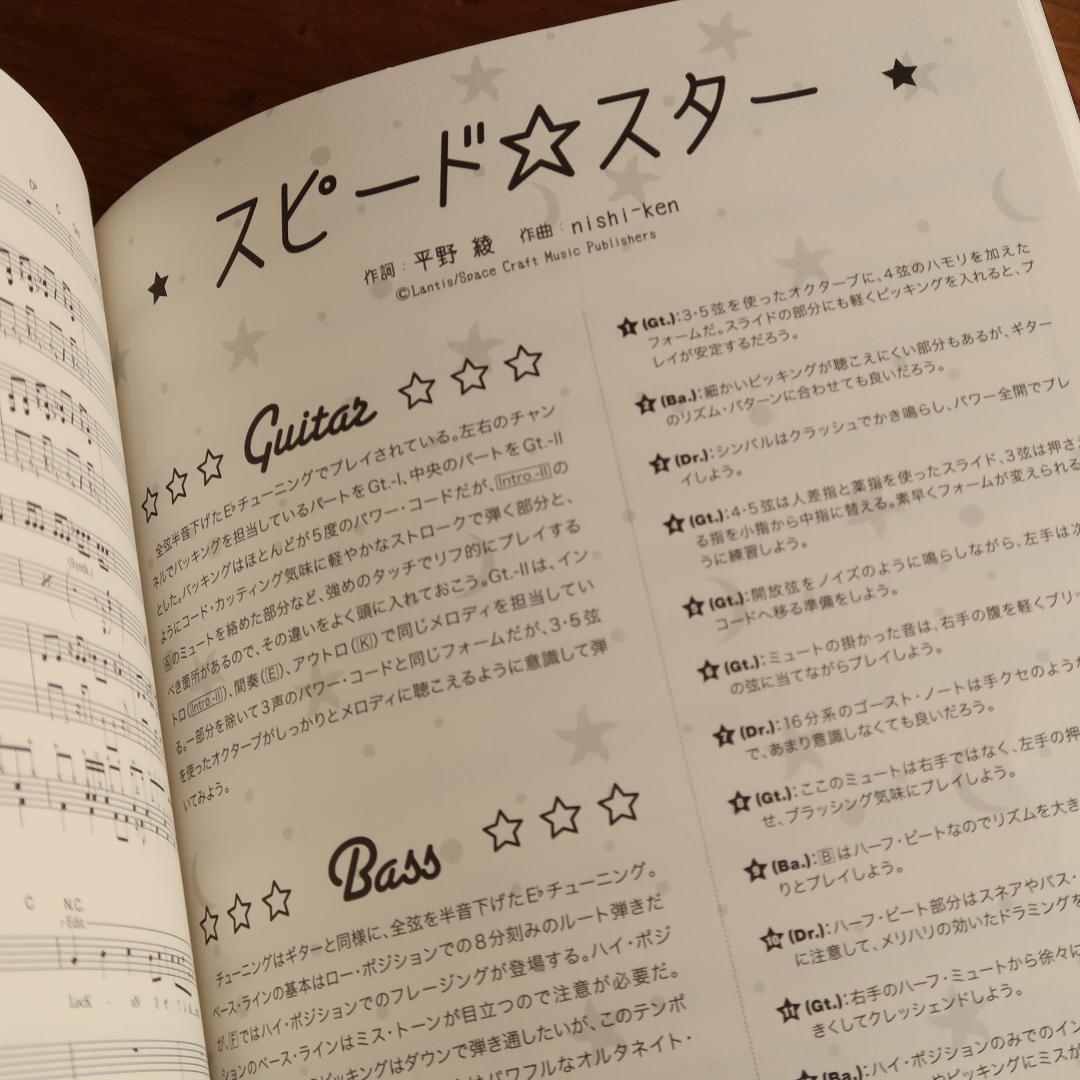 C
N.C.
Edit.
(Synth.)
LocK - oN
スピード☆スター
作詞:平野 綾 作曲:nishi-ken
©Lantis/Space Craft Music Publishers
Guitar
全弦半音下げたE♭チューニングでプレイされている。左右のチャン
ネルでバッキングを担当しているパートをGt.-I、中央のパートをGt.-II
とした。バッキングはほとんどが5度のパワー・コードだが、Intro.-IIの
ようにコード・カッティング気味に軽やかなストロークで弾く部分と、
Aのミュートを絡めた部分など、強めのタッチでリフ的にプレイする
べき箇所があるので、その違いをよく頭に入れておこう。Gt.-IIは、イン
トロ(Intro.-II)、間奏(E)、アウトロ(K)で同じメロディを担当してい
る。一部分を除いて3声のパワー・コードと同じフォームだが、3・5弦
を使ったオクターブがしっかりとメロディに聴こえるように意識して弾
いてみよう。
Bass
チューニングはギターと同様に、全弦を半音下げたE♭チューニング。
ベース・ラインの基本はロー・ポジションでの8分刻みのルート弾きだ
が、Fではハイ・ポジションでのフレージングが登場する。ハイ・ポジ
ションのベース・ラインはミス・トーンが目立つので注意が必要だ。
ピッキングはダウンで弾き通したいが、このテンポ
はパワフルなオルタネイト・
1(Gt.):3・5弦を使ったオクターブに、4弦のハモリを加えた
フォームだ。スライドの部分にも軽くピッキングを入れると、プ
レイが安定するだろう。
2(Ba.):細かいピッキングが聴こえにくい部分もあるが、ギター
のリズム・パターンに合わせても良いだろう。
3(Dr.):シンバルはクラッシュでかき鳴らし、パワー全開でプレ
イしよう。
4(Gt.):4・5弦は人差指と薬指を使ったスライド、3弦は押さえ
る指を小指から中指に替える。素早くフォームが変えられる
うに練習しよう。
5(Gt.):開放弦をノイズのように鳴らしながら、左手は次
コードへ移る準備をしよう。
6(Gt.):ミュートの掛かった音は、右手の腹を軽くブリッ
の弦に当てながらプレイしよう。
7(Dr.):16分系のゴースト・ノートは手クセのような
で、あまり意識しなくても良いだろう。
8(Gt.):ここのミュートは右手ではなく、左手の押
せ、ブラッシング気味にプレイしよう。
9(Ba.):Bはハーフ・ビートなのでリズムを大き
りとプレイしよう。
10(Dr.):ハーフ・ビート部分はスネアやバス・
に注意して、メリハリの効いたドラミングを
11(Gt.):右手のハーフ・ミュートから徐々に
きくしてクレッシェンドしよう。
(Ba.):ハイ・ポジションのみでのイン
やピッキングにミスが